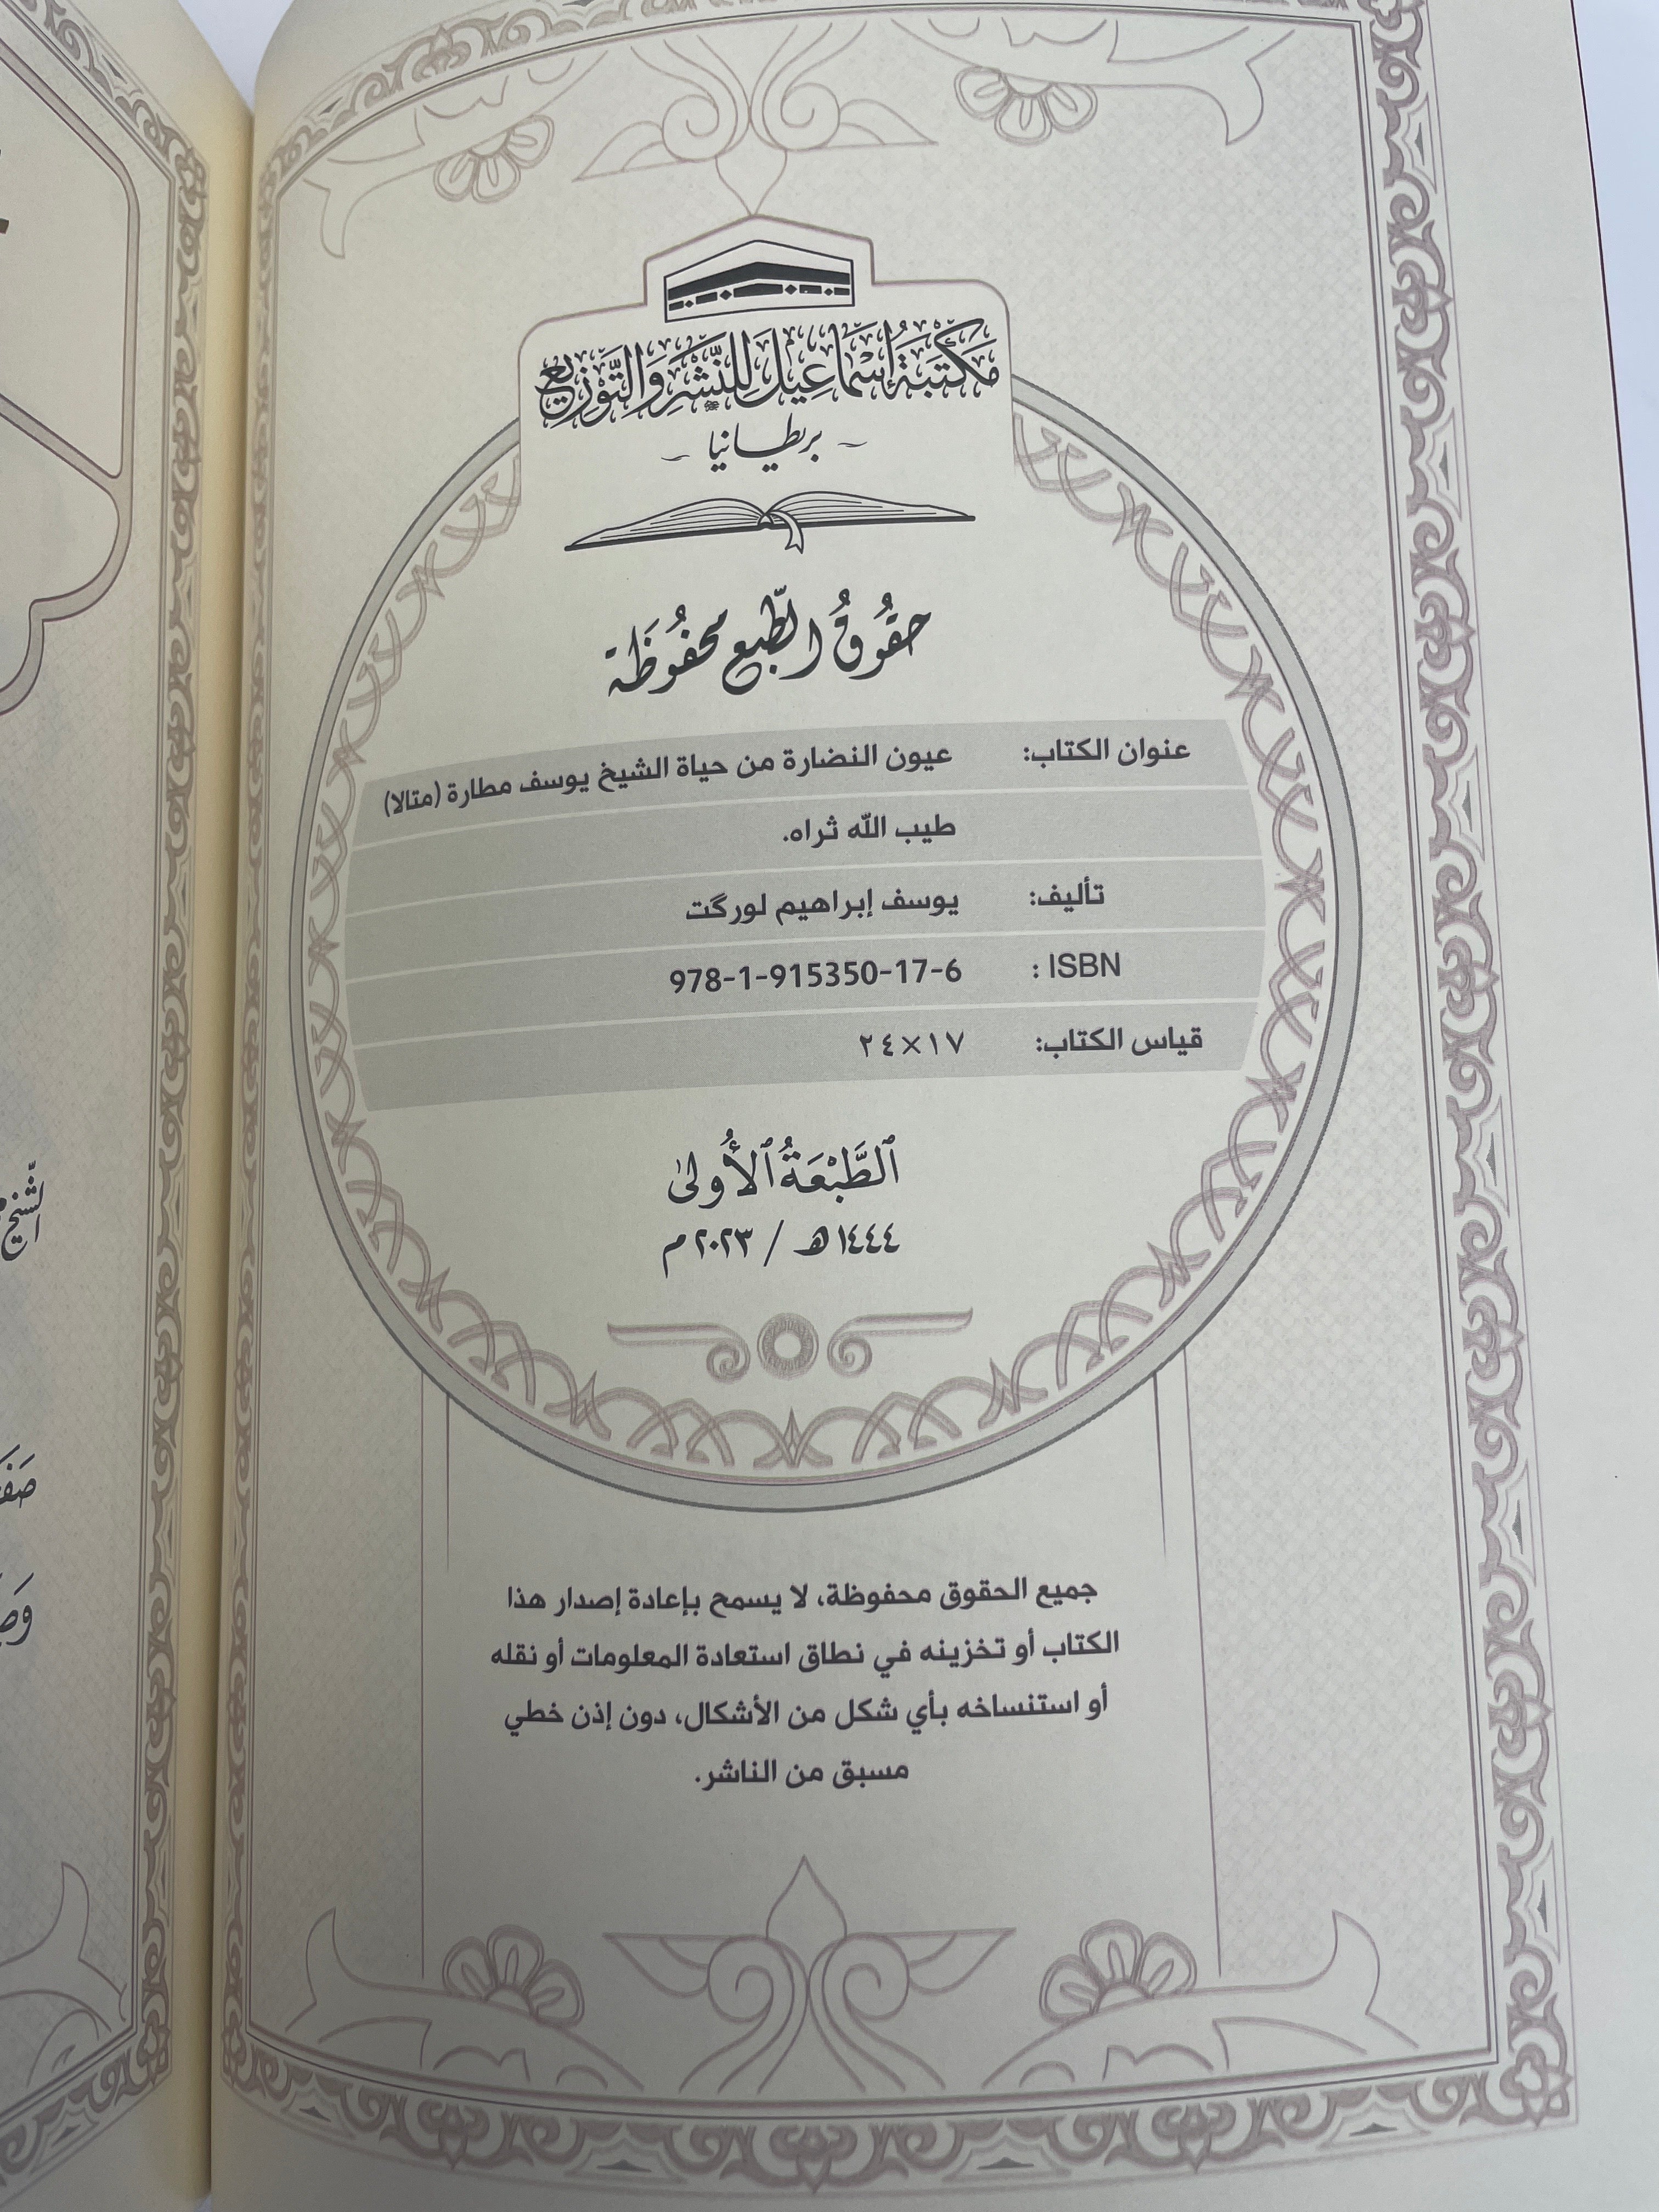 مَكْتَبَةُ إِسْمَاعِيلَ لِلنَّشْرِ وَالتَّوْزِيعِ
- بريطانيا -
حقُوقُ الطّبع محفُوظَة
عنوان الكتاب: عيون النضارة من حياة الشيخ يوسف مطارة (متالا)
طيب الله ثراه.
تأليف: يوسف إبراهيم لورگت
ISBN : 978-1-915350-17-6
قياس الكتاب: ١٧×٢٤
ٱلطَّبْعَةُ ٱلأُولىٰ
١٤٤٤ هـ / ٢٠٢٣ م
جميع الحقوق محفوظة، لا يسمح بإعادة إصدار هذا
الكتاب أو تخزينه في نطاق استعادة المعلومات أو نقله
أو استنساخه بأي شكل من الأشكال، دون إذن خطي
مسبق من الناشر.